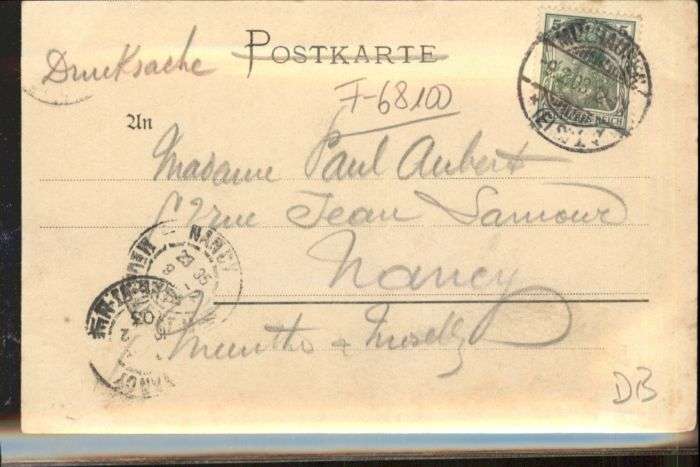 POSTKARTE
Drucksache
F-68100
An
Madame Paul Aubert
rue Jean Lamour
Nancy
Meurthe & Moselle
DB
5 5
REICH
NANCY
NANCY